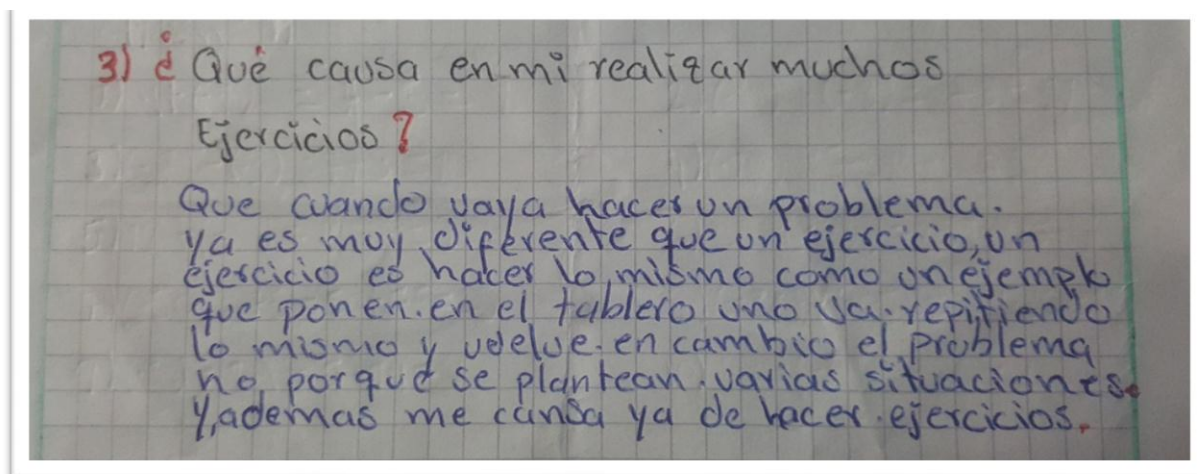 3) ¿ Qué causa en mi realizar muchos
Ejercicios?
Que cuando vaya hacer un problema.
ya es muy diferente que un ejercicio, un
ejercicio es hacer lo mismo como un ejemplo
que ponen. en el tablero uno va. repitiendo
lo mismo y vuelve. en cambio el problema
no porque se plantean. varias situaciones.
Y, ademas me cansa ya de hacer. ejercicios.